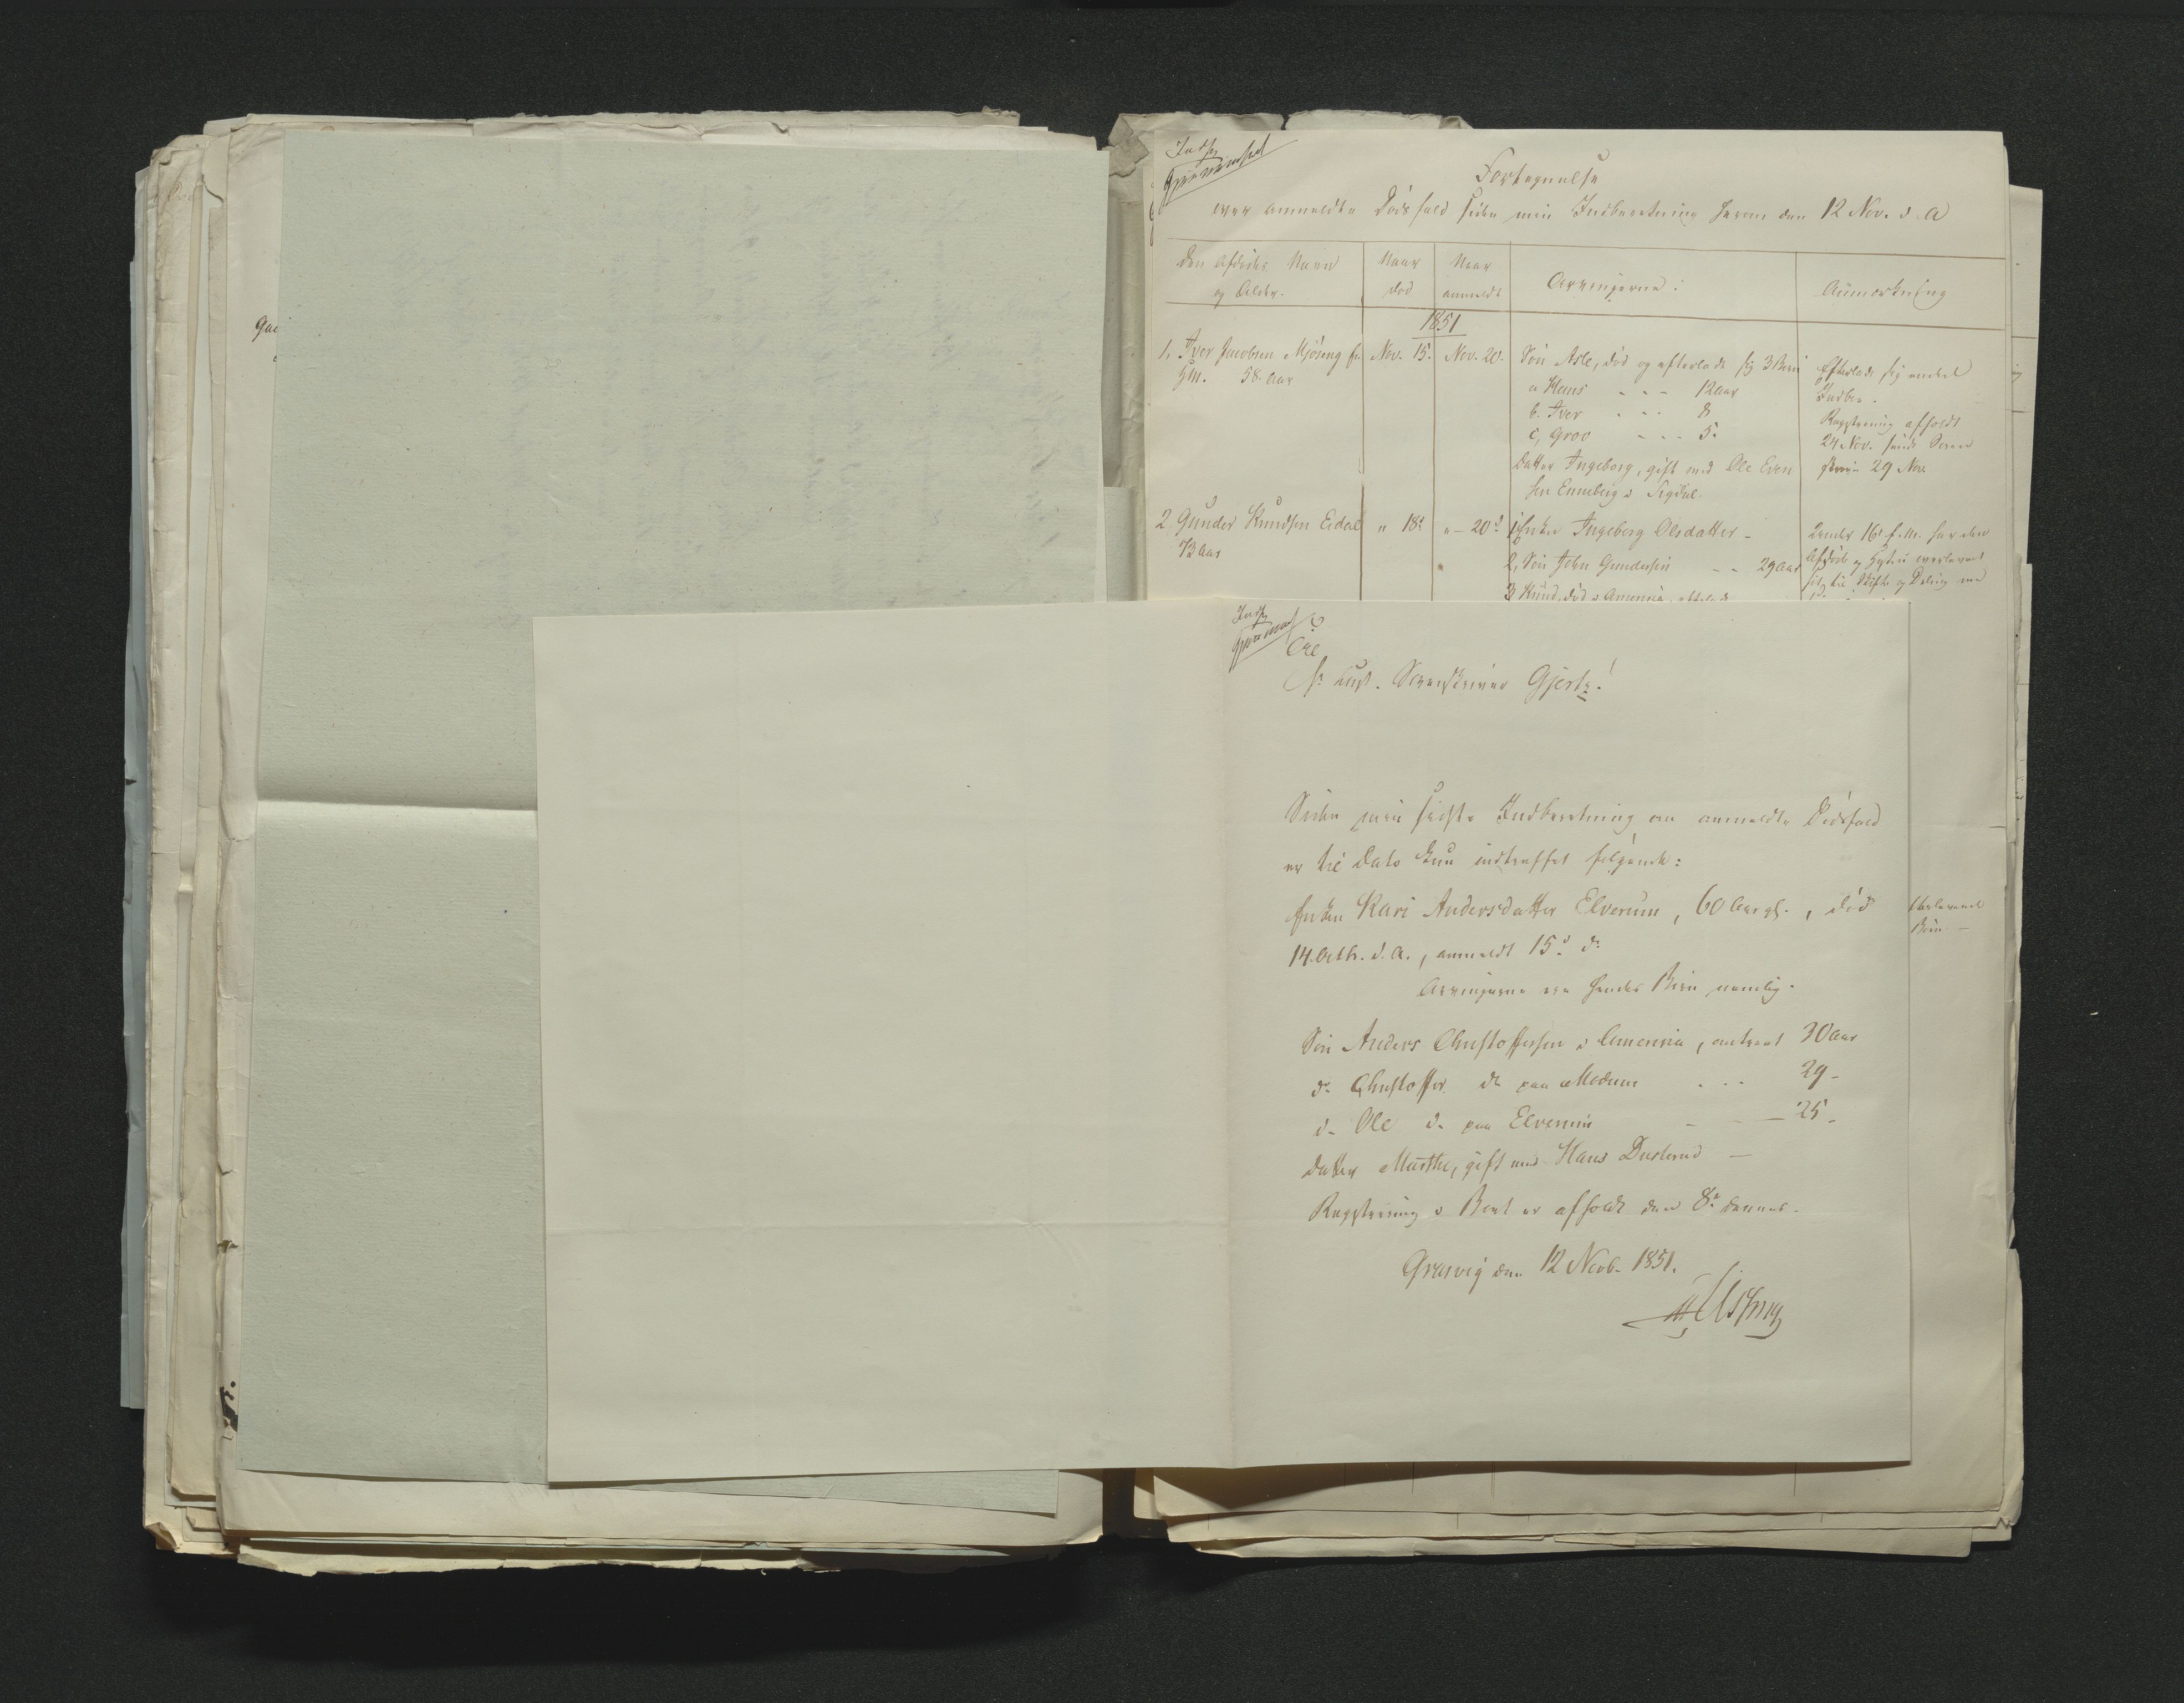 Indf.
Gjennemset
Fortegnelse
over anmeldte Dødsfald siden min Indberetning herom den 12 Nov. d. A
Den Afdødes Navn
og Alder.
Naar
død
Naar
anmeldt
Arvingerne:
Anmærkning
1851
1, Iver Jacobsen Mjøseng
58 Aar
Nov. 15.
Nov. 20.
Søn Asle, død og efterladt sig 3 Børn
a Hans - - - 12 aar
b. Iver - - - 8
c, Groo - - - 5.
Datter Ingeborg, gift med Ole Even
sen Enneberg i Sigdal.
Efterlod sig
Registrering afholdt
24 Nov. sendt Soren
skriv 29 Nov.
2 Gunder Knudsen Eidal
73 Aar
" 18d
" - 20d
1, Enke Ingeborg Olsdatter -
2, Søn John Gundersen - - 29 Aar
3 Knud, død i America
16. f. M. har den
Afdøde og Hustru overleveret
til Skifte og Deling
Indf.
Gjennemset
Til
Hr Sorenskriver Gjertz!
Siden min sidste Indberetning om anmeldte Dødsfald
er til Dato kun indtruffet følgende:
Enken Kari Andersdatter Elverum, 60 Aar gl., død
14. Octb. d. A., anmeldt 15d ds
efterlevende
Børn -
Arvingerne ere hendes Børn nemlig.
Søn Anders Christoffersen i America, omtrent 30 aar
do Christoffer do paa Modum - - - 29 -
do Ole do paa Elverum - - - 25 -
Datter Marthe, gift med Hans Dusterud -
Registrering i Boet er afholdt den 8d dennes.
Græsvig den 12 Novb. 1851.